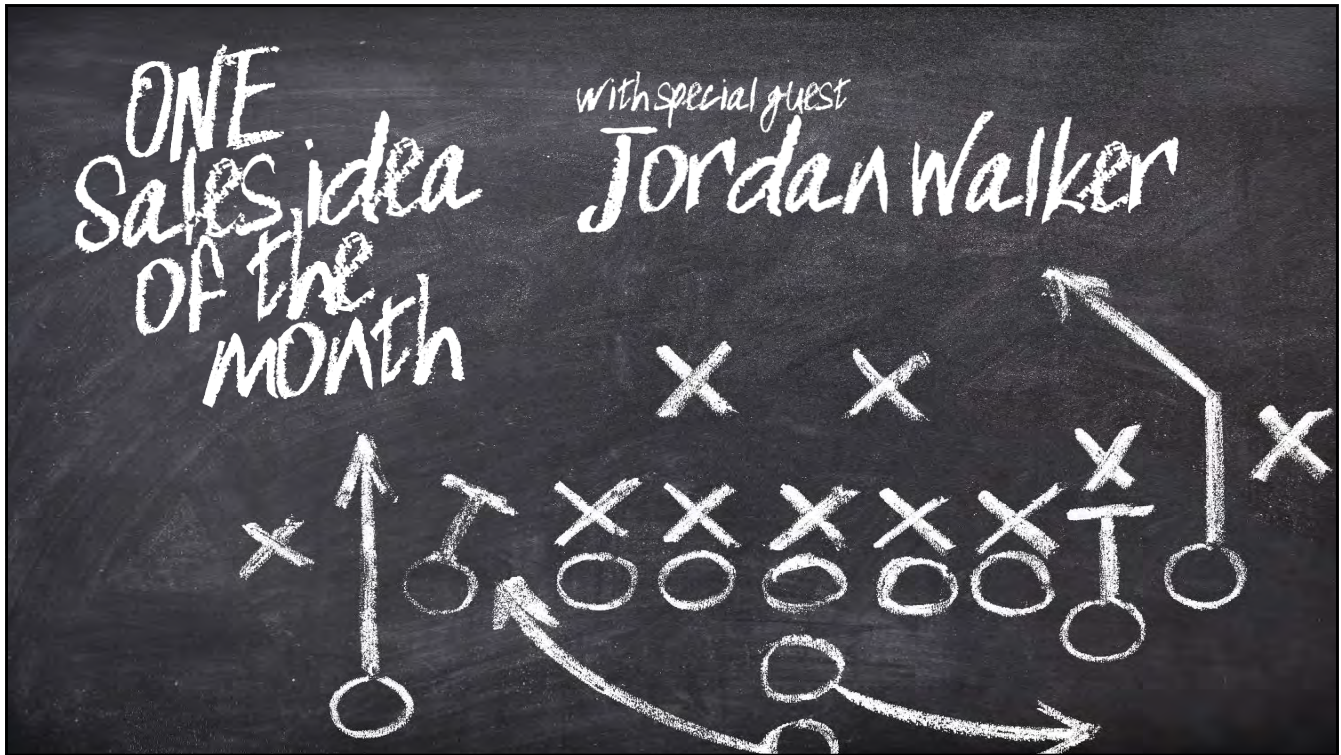 ONE
Sales idea
of the
month
with special guest
Jordan Walker